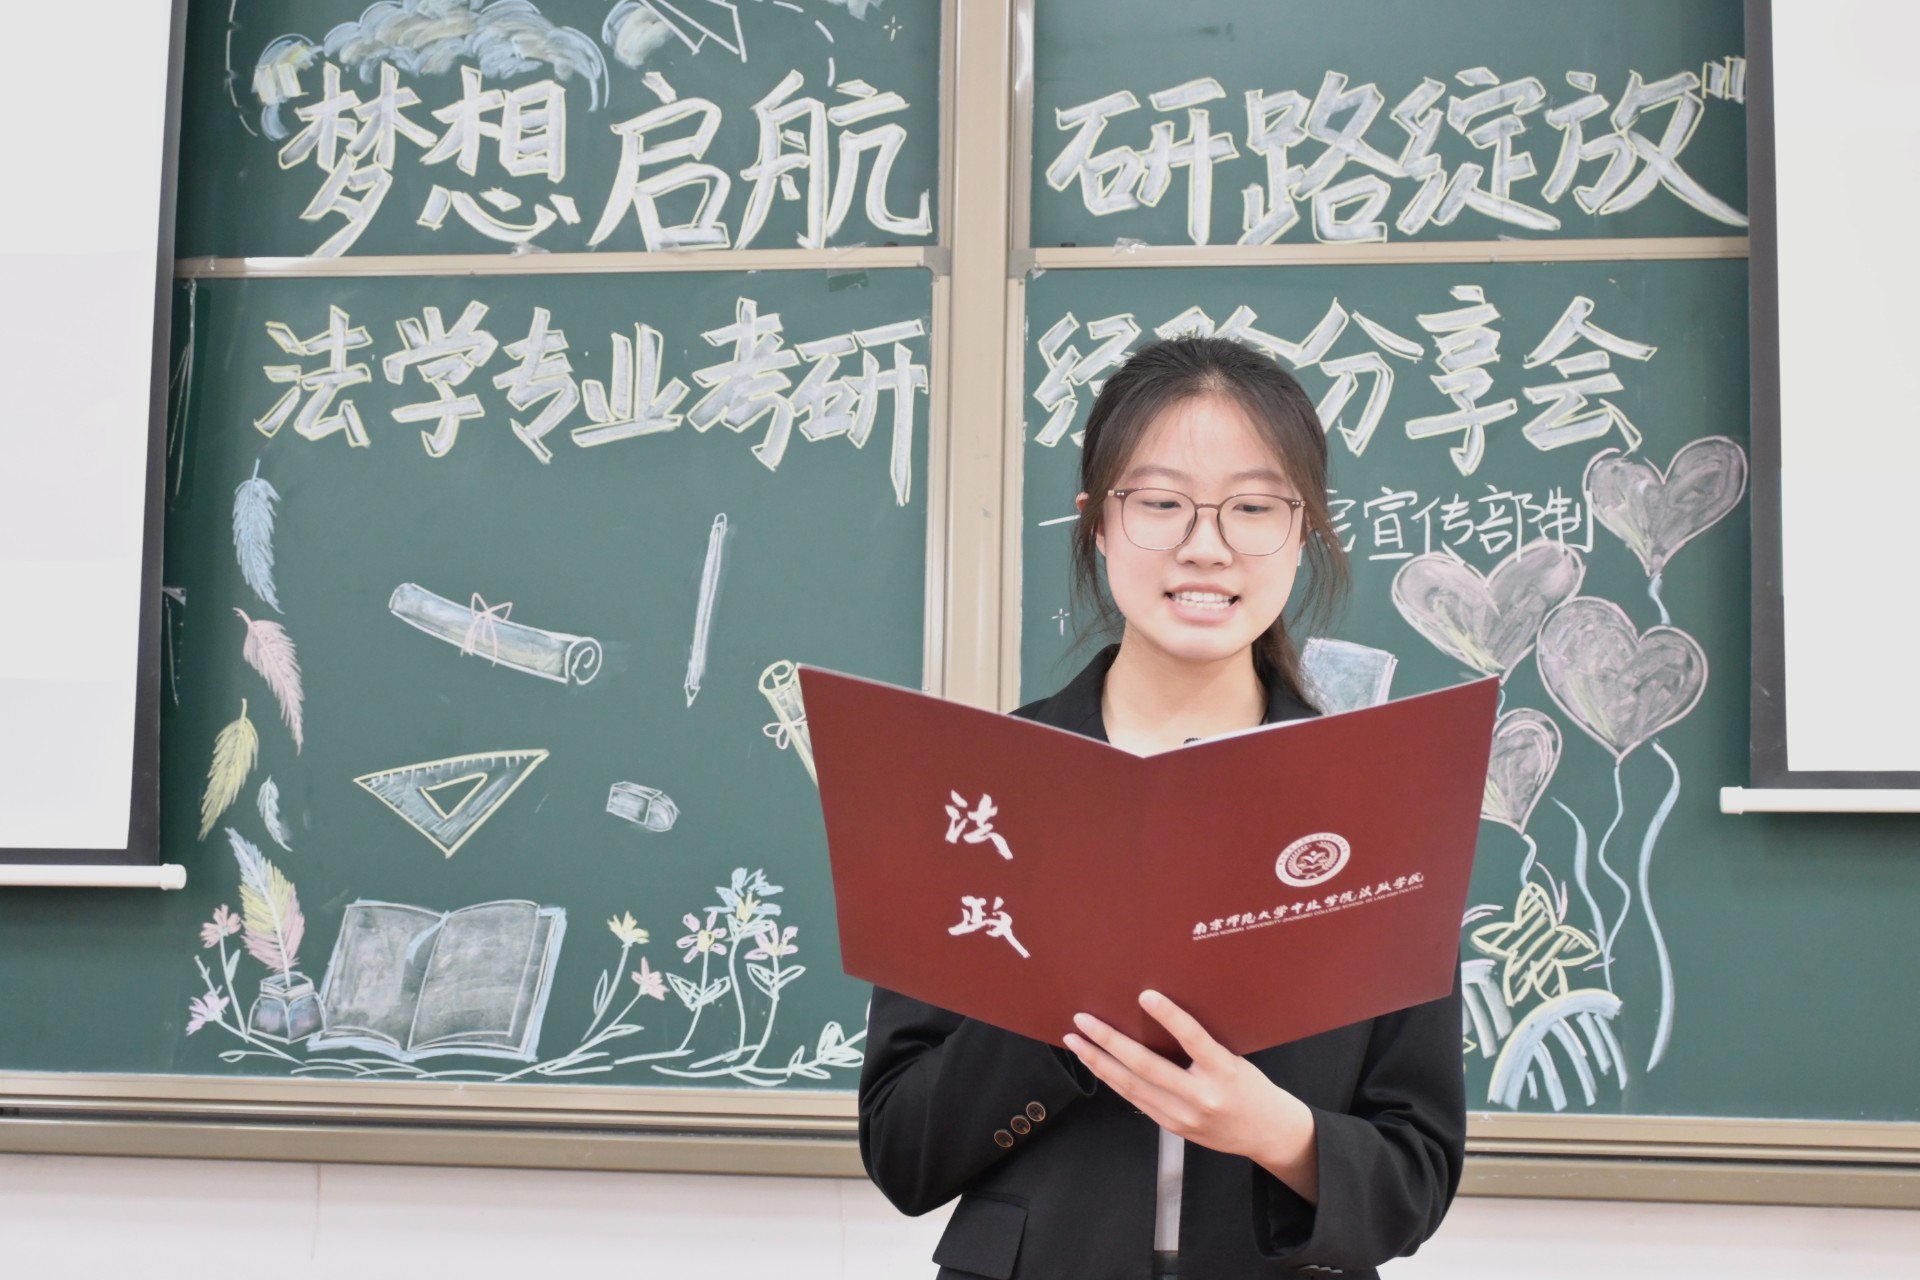 “梦想启航 研路绽放”
法学专业考研 经验分享会
院宣传部制
法政
南京师范大学中北学院法政学院
NANJING NORMAL UNIVERSITY ZHONGBEI COLLEGE SCHOOL OF LAW AND POLITICS